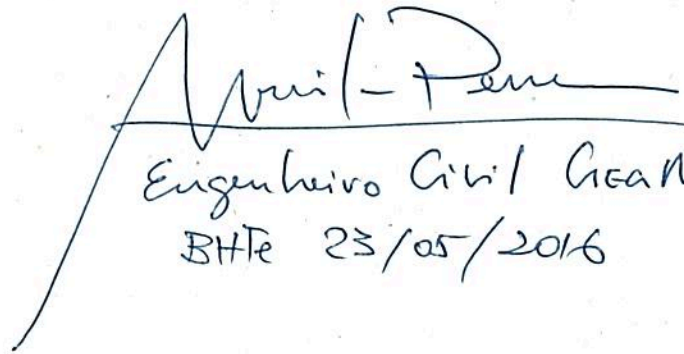 Engenheiro Civil CREA M
BHTe 23/05/2016